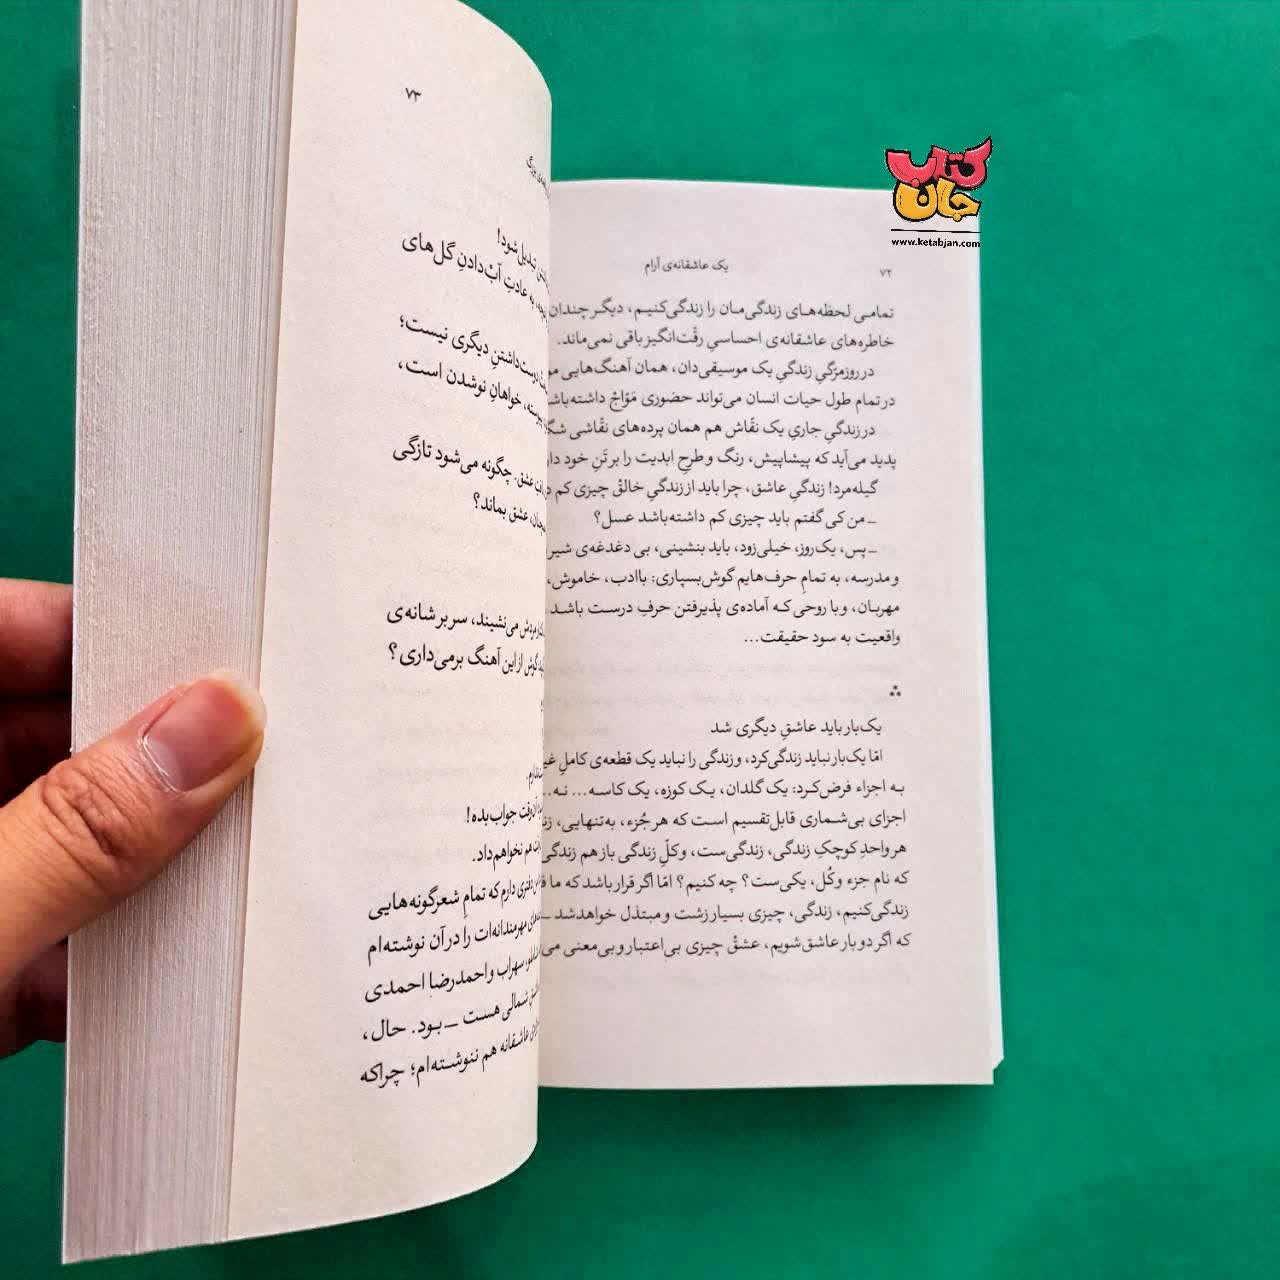 کتاب جان
www.ketabjan.com
۷۲
یک عاشقانه‌ی آرام
تمامی لحظه‌های زندگی‌مان را زندگی‌کنیم، دیگر چندان
خاطره‌های عاشقانه‌ی احساسیِ رقّت‌انگیز باقی نمی‌ماند.
در روزمرّگیِ زندگیِ یک موسیقی‌دان، همان آهنگ‌هایی
در تمام طول حیات انسان می‌تواند حضوری مَوّاجْ داشته‌باشد
در زندگیِ جاریِ یک نقّاش هم همان پرده‌های نقّاشی
پدید می‌آید که پیشاپیش، رنگ و طرحِ ابدیت را بر تَنِ خود
گیله‌مرد! زندگیِ عاشق، چرا باید از زندگیِ خالقْ چیزی کم
ـ من کی گفتم باید چیزی کم داشته‌باشد عسل؟
ـ پس، یک‌روز، خیلی‌زود، باید بنشینی، بی دغدغه‌ی
و مدرسه، به تمامِ حرف‌هایم گوش‌بسپاری: باادب، خاموش،
مهربان، و با روحی که آماده‌ی پذیرفتن حرفِ درست باشد
واقعیت به سود حقیقت...
یک‌بار باید عاشقِ دیگری شد
امّا یک‌بار نباید زندگی‌کرد، و زندگی را نباید یک قطعه‌ی کاملِ
به اجزاء فرض‌کرد: یک گلدان، یک کوزه، یک کاسه... نه...
اجزای بی‌شماری قابل‌تقسیم است که هر جُزء، به‌تنهایی،
هر واحدِ کوچکِ زندگی، زندگی‌ست، و کلّ زندگی باز هم زندگی
که نام جزء و کُل، یکی‌ست؟ چه کنیم؟ امّا اگر قرار باشد که ما
زندگی‌کنیم، زندگی، چیزی بسیار زشت و مبتذل خواهدشد ـ
که اگر دو بار عاشق‌شویم، عشقْ چیزی بی‌اعتبار و بی‌معنی
۷۳
تبدیل‌شود!
به عادتِ آبْ‌دادنِ گل‌های
دوست‌داشتنِ دیگری نیست؛
پیوسته، خواهانِ نوشدن است،
عشق. چگونه می‌شود تازگی
عشق بماند؟
مردش می‌نشیند، سر بر شانه‌ی
گوش از این آهنگ برمی‌داری؟
آن‌وقت جواب‌بده!
هم نخواهم‌داد.
دفتری دارم که تمامِ شعرگونه‌هایی
مهرمندانه‌ات را در آن نوشته‌ام
سهراب و احمدرضا احمدی
شمالی هست ـ بود. حال،
عاشقانه هم ننوشته‌ام؛ چراکه